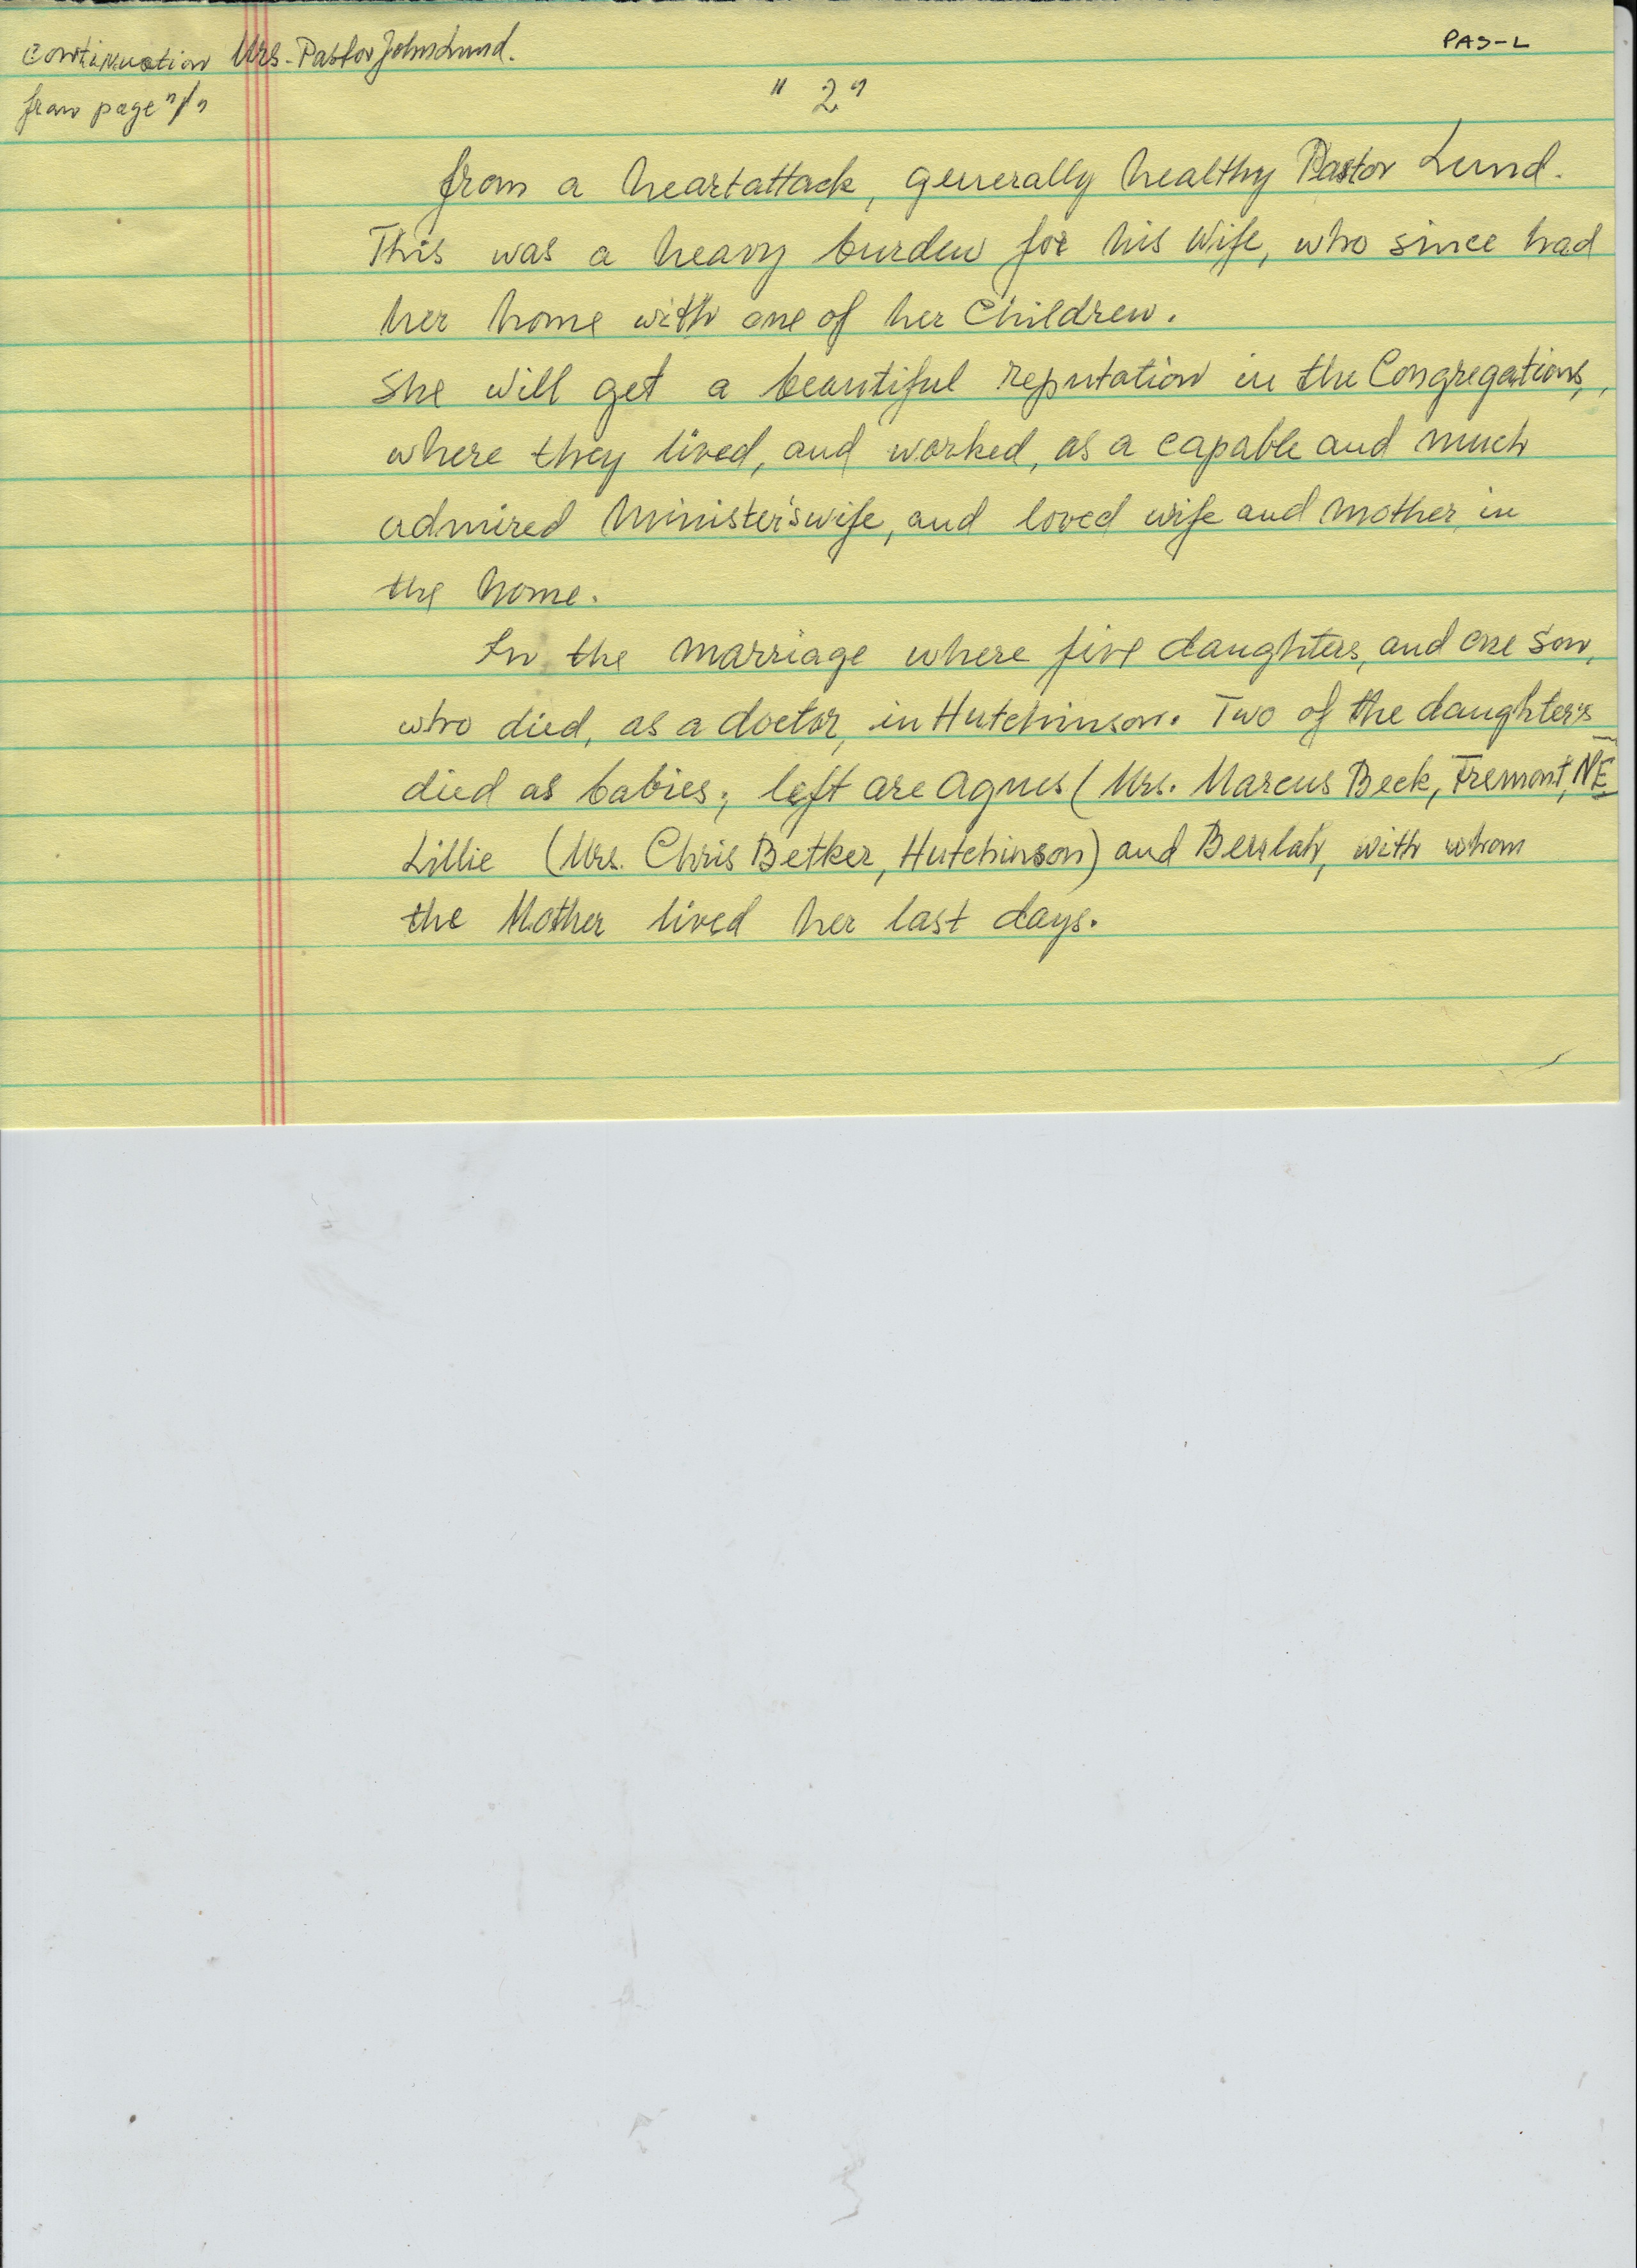 continuation Mrs. Pastor John Lund.
PAS-L
from page "1"
" 2 "
from a heartattack, generally healthy Pastor Lund.
This was a heavy burden for his Wife, who since had
her home with one of her Children.
She will get a beautiful reputation in the Congregations,
where they lived, and worked, as a capable and much
admired Minister's wife, and loved wife and mother, in
the home.
In the marriage where five daughters, and one son,
who died, as a doctor, in Hutchinson. Two of the daughter's
died as babies; left are Agnes (Mrs. Marcus Beck, Fremont, NE
Lillie (Mrs. Chris Betker, Hutchinson) and Beulah, with whom
the Mother lived her last days.